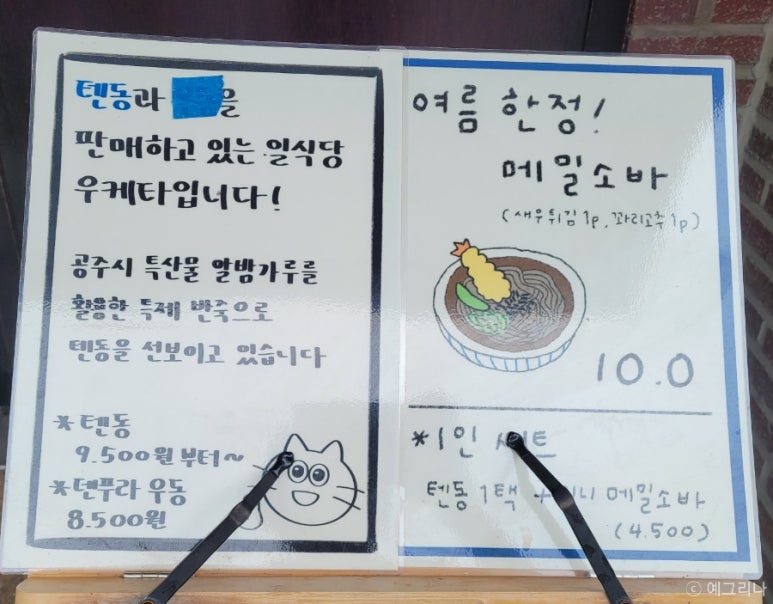 텐동과 을
판매하고 있는 일식당
우케타입니다!
공주시 특산물 알밤가루를
활용한 특제 반죽으로
텐동을 선보이고 있습니다
*텐동
9.500원 부터~
*덴푸라 우동
8.500원
여름 한정!
메밀소바
(새우튀김 1p, 꽈리고추 1p)
10.0
*1인 세트
텐동 1택 + 미니 메밀소바
(4.500)
© 예그리나